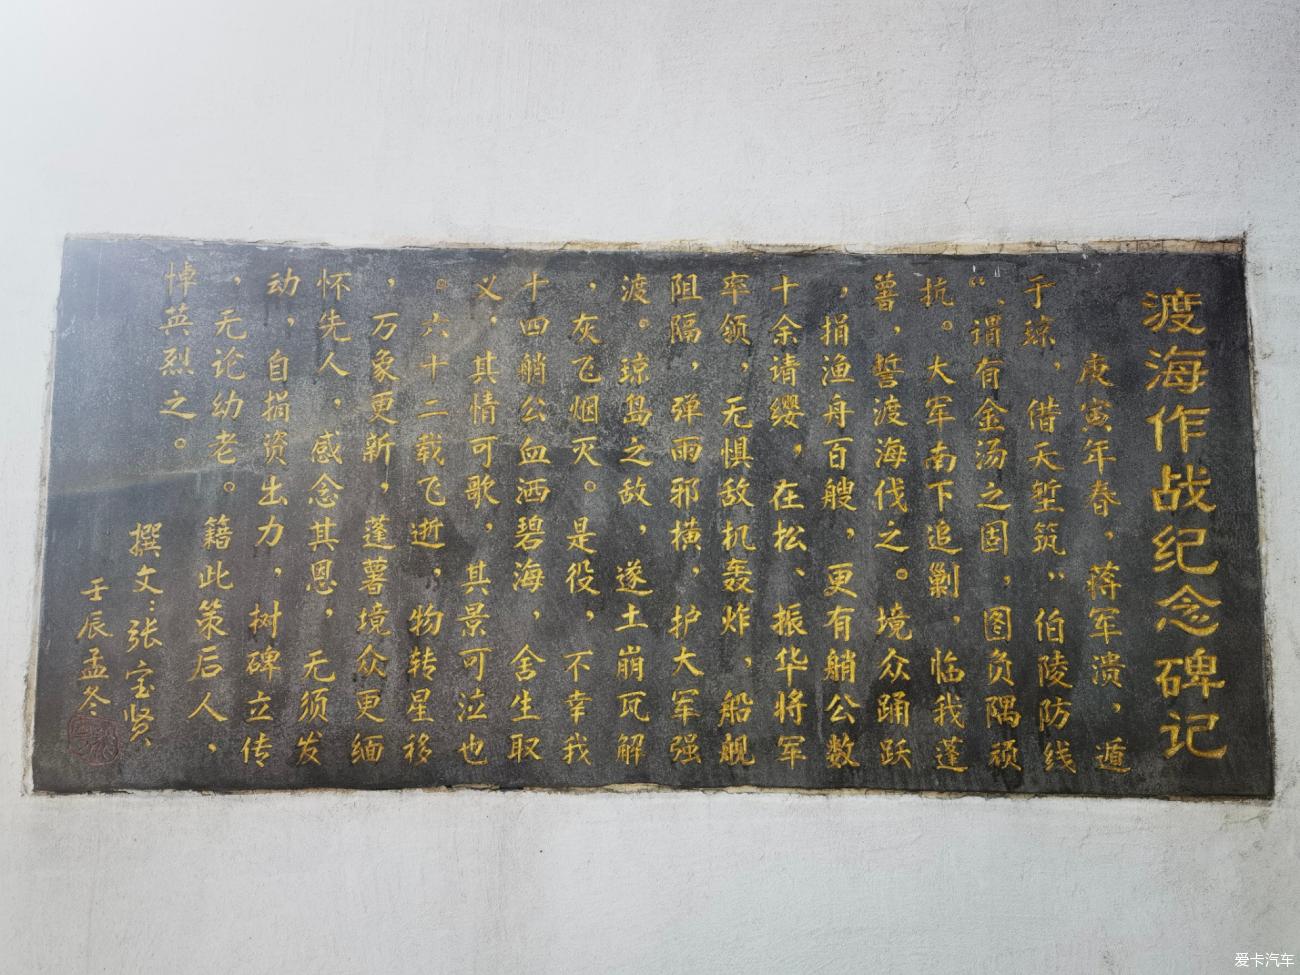 渡海作战纪念碑记
庚寅年春，蒋军溃，遁
于琼，借天堑筑“伯陵防线
”，谓有金汤之固，图负隅顽
抗。大军南下追剿，临我蓬
薯，誓渡海伐之。境众踊跃
，捐渔舟百艘，更有艄公数
十余请缨，在松、振华将军
率领，无惧敌机轰炸，船舰
阻隔，弹雨邪横，护大军强
渡。琼岛之敌，遂土崩瓦解
，灰飞烟灭。是役，不幸我
十四艄公血洒碧海，舍生取
义，其情可歌，其景可泣也
。六十二载飞逝，物转星移
，万象更新，蓬薯境众更缅
怀先人，感念其恩，无须发
动，自捐资出力，树碑立传
，无论幼老。籍此策后人，
悼英烈之。
撰文：张宝贤
壬辰孟冬
爱卡汽车